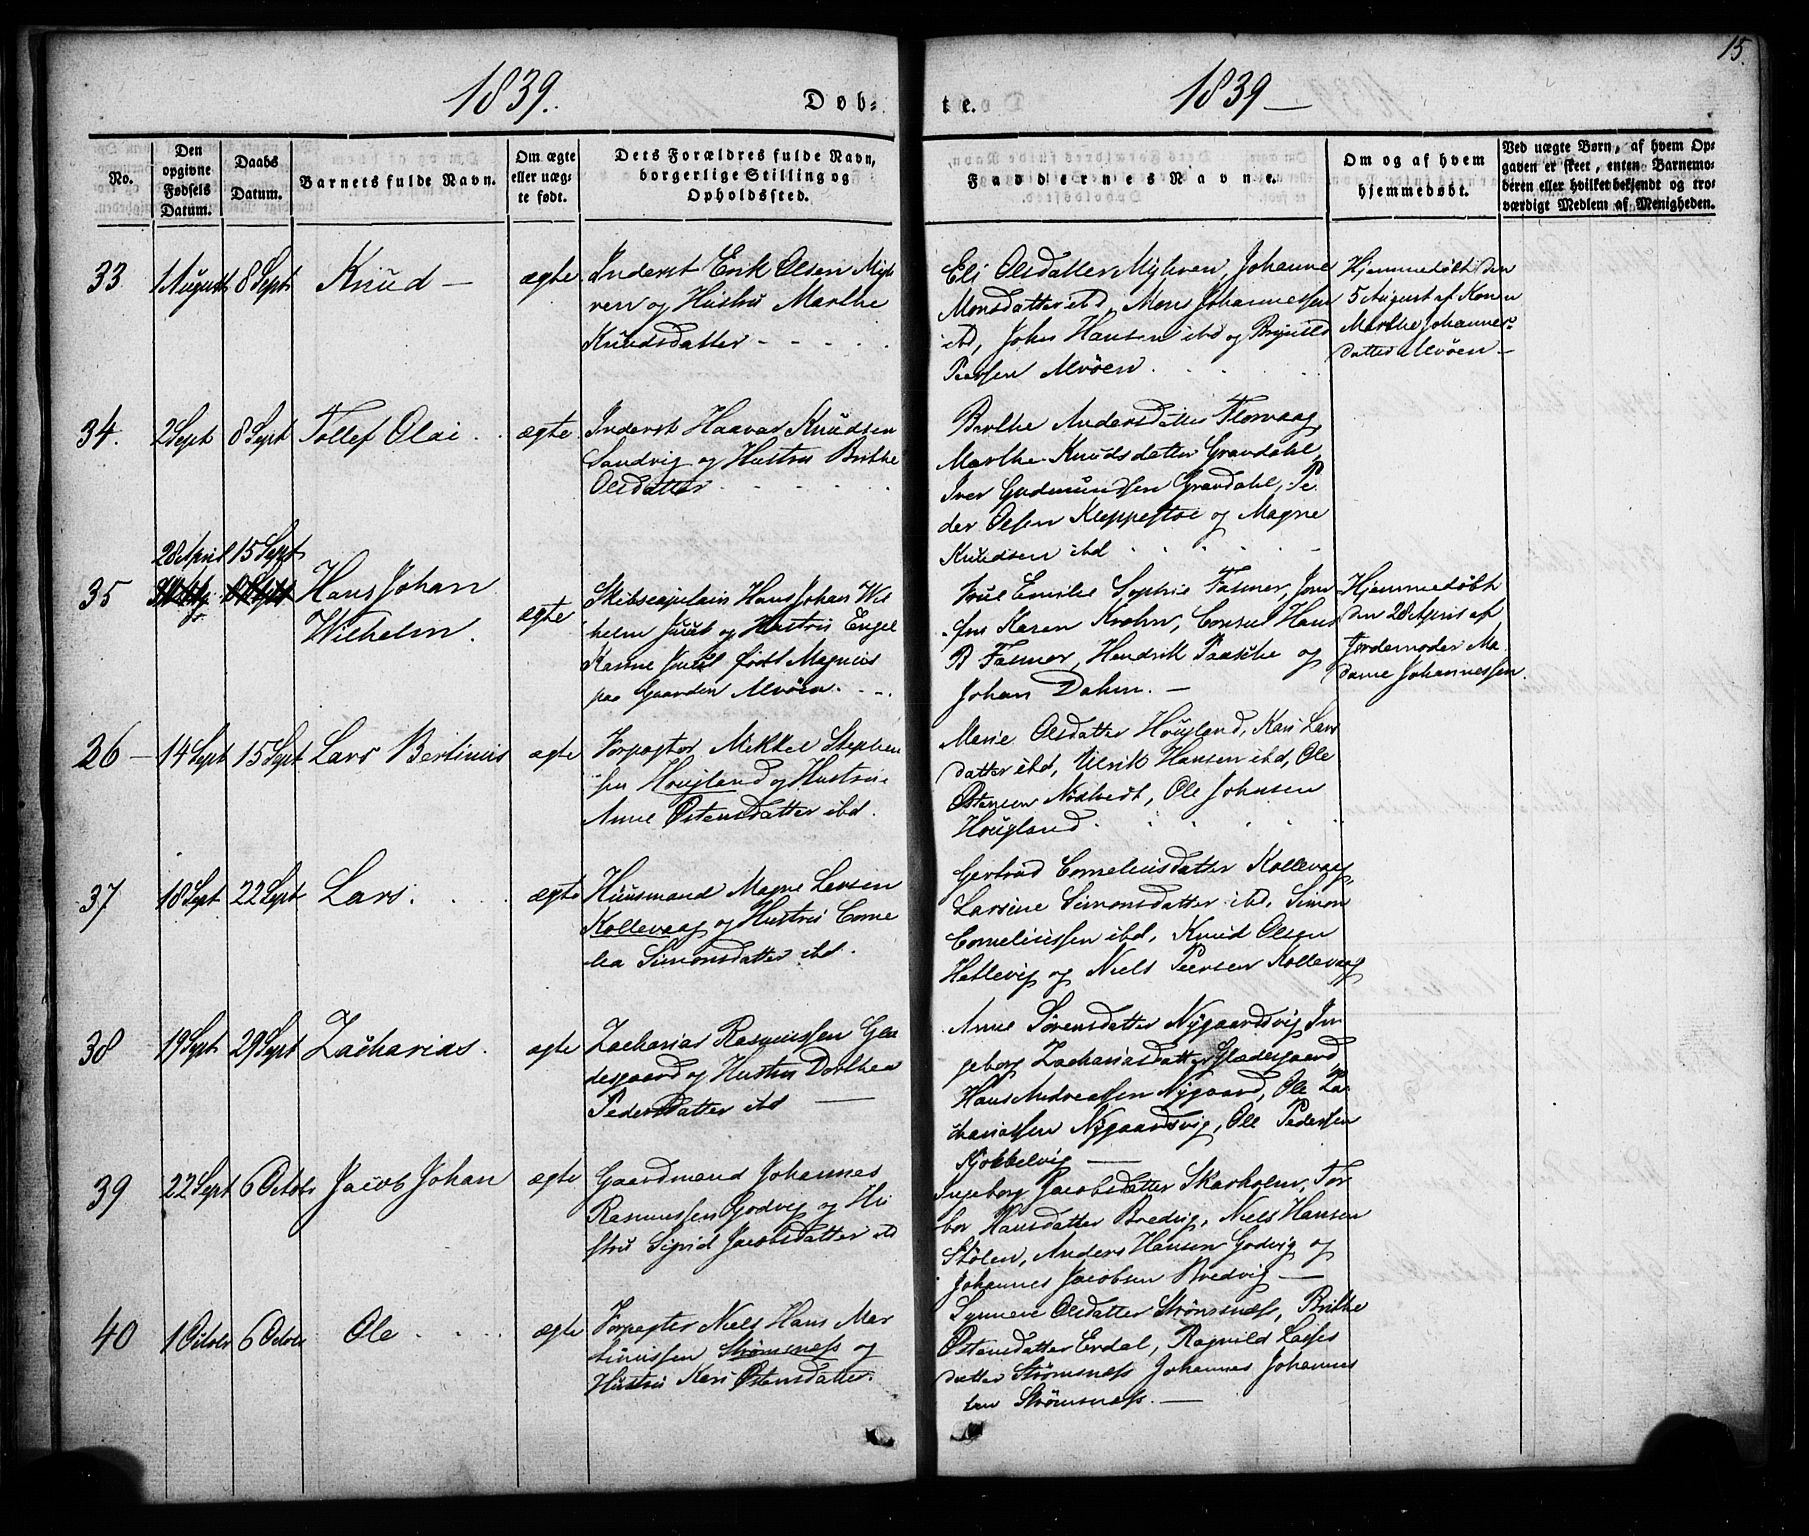 15.
1839.
Døb-
te.
1839 —
No.
Den
opgivne
Fødsels
Datum.
Daabs
Datum.
Barnets fulde Navn.
Om ægte
eller uæg-
te født.
Dets Forældres fulde Navn,
borgerlige Stilling og
Opholdssted.
Faddernes Navne.
Om og af hvem
hjemmedøbt.
Ved uægte Børn, af hvem Op-
gaven er skeet, enten Barnemo-
deren eller hvilket bekjendt og tro-
værdigt Medlem af Menigheden.
33
1 August
8 Sept
Knud —
ægte
Inderst Erik Olsen Myh
ren og Hustru Marthe
Knudsdatter
Eli Olsdatter Myhren, Johanne
Monsdatter ibd, Mons Johannessen
ibd, John Hansen ibd og Brynild
Peersen Alvøen
Hjemmedøbt den
5 August af Konen
Marthe Johannes-
datter Alvøen —
34.
2 Sept
8 Sept
Tollef Olai
ægte
Inderst Haavar Knudsen
Sandvig og Hustru Brithe
Olsdatter
Berthe Andersdatter Florvaag,
Marthe Knudsdatter Gravdahl,
Iver Gudmundssen Gravdahl, Pe
der Olsen Kleppestøe og Magne
Knudsen ibd
35
28 April
15 Sept
Hans Johan
Wilhelm.
ægte
Skibscapitain Hans Johan Wil
helm Juul og Hustru Engel
Kanne Juul født Magnus
paa Gaarden Alvøen.
Frue Emilie Sophie Fasmer, Jom
fru Karen Krohn, Consul Hans
B Fasmer, Hendrik Paasche og
Johan Dahm. —
Hjemmedøbt
den 28 April af
Jordemoder Ma
dame Johannessen.
36 —
14 Sept
15 Sept
Lars Bertinus
ægte
Forpagter Mikkel Stephen
sen Hougland og Hustru
Anne Østensdatter ibd.
Marie Olsdatter Hougland, Kari Lars
datter ibd, Ulrik Hansen ibd, Ole
Østensen, Ole Johnsen
Hougland.
37
18 Sept
22 Sept
Lars.
ægte
Huusmand Magne Larsen
Kollevaag og Hustru Corne
lia Simonsdatter ibd.
Gertrud Corneliusdatter Kollevaag,
Larsine Simonsdatter ibd, Simon
Corneliussen ibd, Knud Olsen
Hetlevig og Niels Peersen Kollevaag
38
19 Sept
29 Sept
Zacharias.
ægte
Zacharias Rasmussen Glæ
desgaard og Hustru Dorthea
Pedersdatter ibd —
Anne Sørensdatter Nygaardsvig, In
geborg Zachariasdatter Glædesgaard
Hans Andreassen Nygaard, Ole Za-
chariassen Nygaardsvig, Ole Pedersen
Kjøkkelvig —
39
22 Sept
6 Octobr
Jacob Johan
ægte
Gaardmand Johannes
Rasmussen Godvig og Hu
stru Sigrid Jacobsdatter ibd
Ingeborg Jacobsdatter Skarholm, Tor
bor Hansdatter Bredvig, Niels Hansen
Stølen, Anders Hansen Godvig og
Johannes Jacobsen Bredvig —
40
1 Octobr
6 Octobr
Ole
ægte
Forpagter Niels Hans Mar
tinussen Strømsness og
Hustru Kari Østensdatter.
Synneve Olsdatter Strømsness, Brithe
Østensdatter Erdal, Ragnild Lasses
datter Strømsness Johannes Johannes
sen Strømsness. —